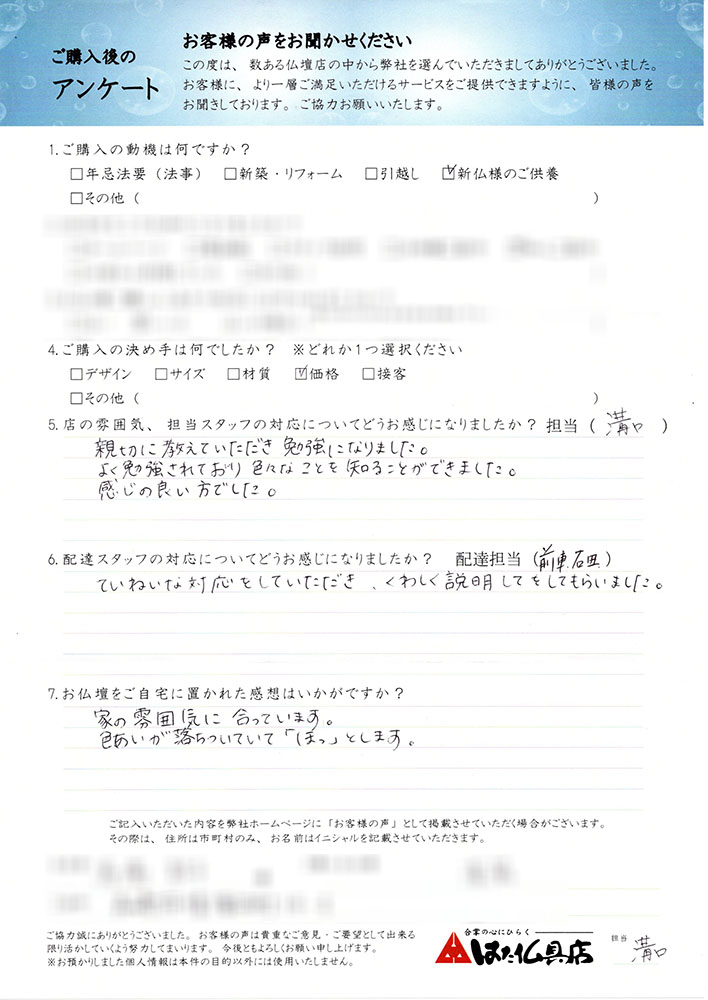 ご購入後の
アンケート
お客様の声をお聞かせください
この度は、数ある仏壇店の中から弊社を選んでいただきましてありがとうございました。
お客様に、より一層ご満足いただけるサービスをご提供できますように、皆様の声を
お聞きしております。ご協力お願いいたします。
1.ご購入の動機は何ですか？
□年忌法要（法事） □新築・リフォーム □引越し ☑新仏様のご供養
□その他（ ）
4.ご購入の決め手は何でしたか？ ※どれか1つ選択ください
□デザイン □サイズ □材質 ☑価格 □接客
□その他（ ）
5.店の雰囲気、担当スタッフの対応についてどうお感じになりましたか？担当（溝口）
親切に教えていただき勉強になりました。
よく勉強されており色々なことを知ることができました。
感じの良い方でした。
6.配達スタッフの対応についてどうお感じになりましたか？ 配達担当（前車.石田）
ていねいな対応をしていただき、くわしく説明してをしてもらいました。
7.お仏壇をご自宅に置かれた感想はいかがですか？
家の雰囲気に合っています。
色あいが落ちついていて「ほっ」とします。
ご記入いただいた内容を弊社ホームページに「お客様の声」として掲載させていただく場合がございます。
その際は、住所は市町村のみ、お名前はイニシャルを記載させていただきます。
ご協力誠にありがとうございました。お客様の声は貴重なご意見・ご要望として出来る
限り活かしていくよう努力してまいります。今後ともよろしくお願い申し上げます。
※お預かりしました個人情報は本件の目的以外には使用いたしません。
合掌の心にひらく
はた仏具店
担当
溝口